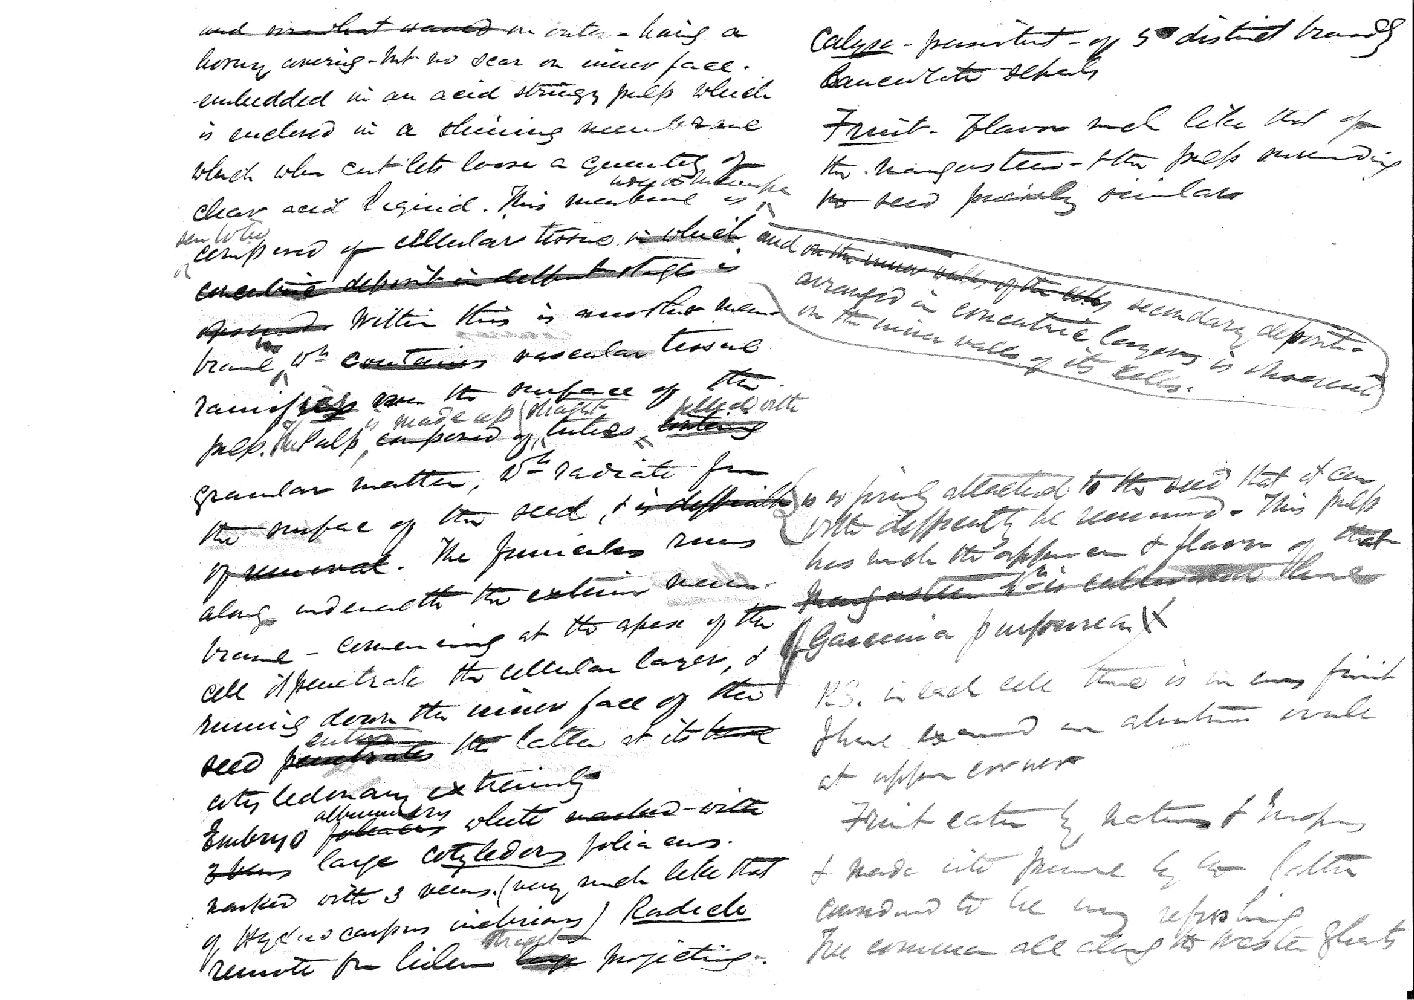 and somewhat waved on outer - having a
horny covering - but no scar on inner face.
embedded in an acid stringy pulp which
is enclosed in a shining membrane
which when cut lets loose a quantity of
clear acid liquid. This membrane is
composed of cellular tissue in which
concentric deposit in different stages is
Within this is another mem
brane, wh contains vascular tissue
ramifies over the surface of the
is made up straight filled with
pulp. The Pulp composed of tubes
granular matter, wh radiate from
the surface of the seed, & is difficult
of removal. The funiculus runs
along underneath the exterior mem-
brane - commencing at the apex of the
cell it penetrates the cellular layers, &
running down the inner face of the
enters
seed penetrates the latter at its
cotyledonary extremity
albuminous
Embryo foliaceous white marked with
3 veins large cotyledons foliaceous.
marked with 3 veins. (very much like that
of Hydnocarpus inebrians) Radicle
straight
remote from hilum large projecting.
Calyx - persistent - of 5 distinct broadly
lanceolate sepals
Fruit - Flavor much like that of
the mangosteen - & the pulp surrounding
seed precisely similar
and on the inner walls of the cells secondary deposit
arranged in concentric layers is
on the inner walls of its cells.
is so firmly attached to the seed that it can
with difficulty be removed - This pulp
has much the appearance & flavor of that
Mangosteen wh is
of Garcinia purpurea X
P.S. in each cell there is in every fruit
I have examined an abortive ovule
at upper corner
Fruit eaten by natives & Europeans
& made into preserve by the latter
considered to be very refreshing
Tree common all along the Western Ghauts